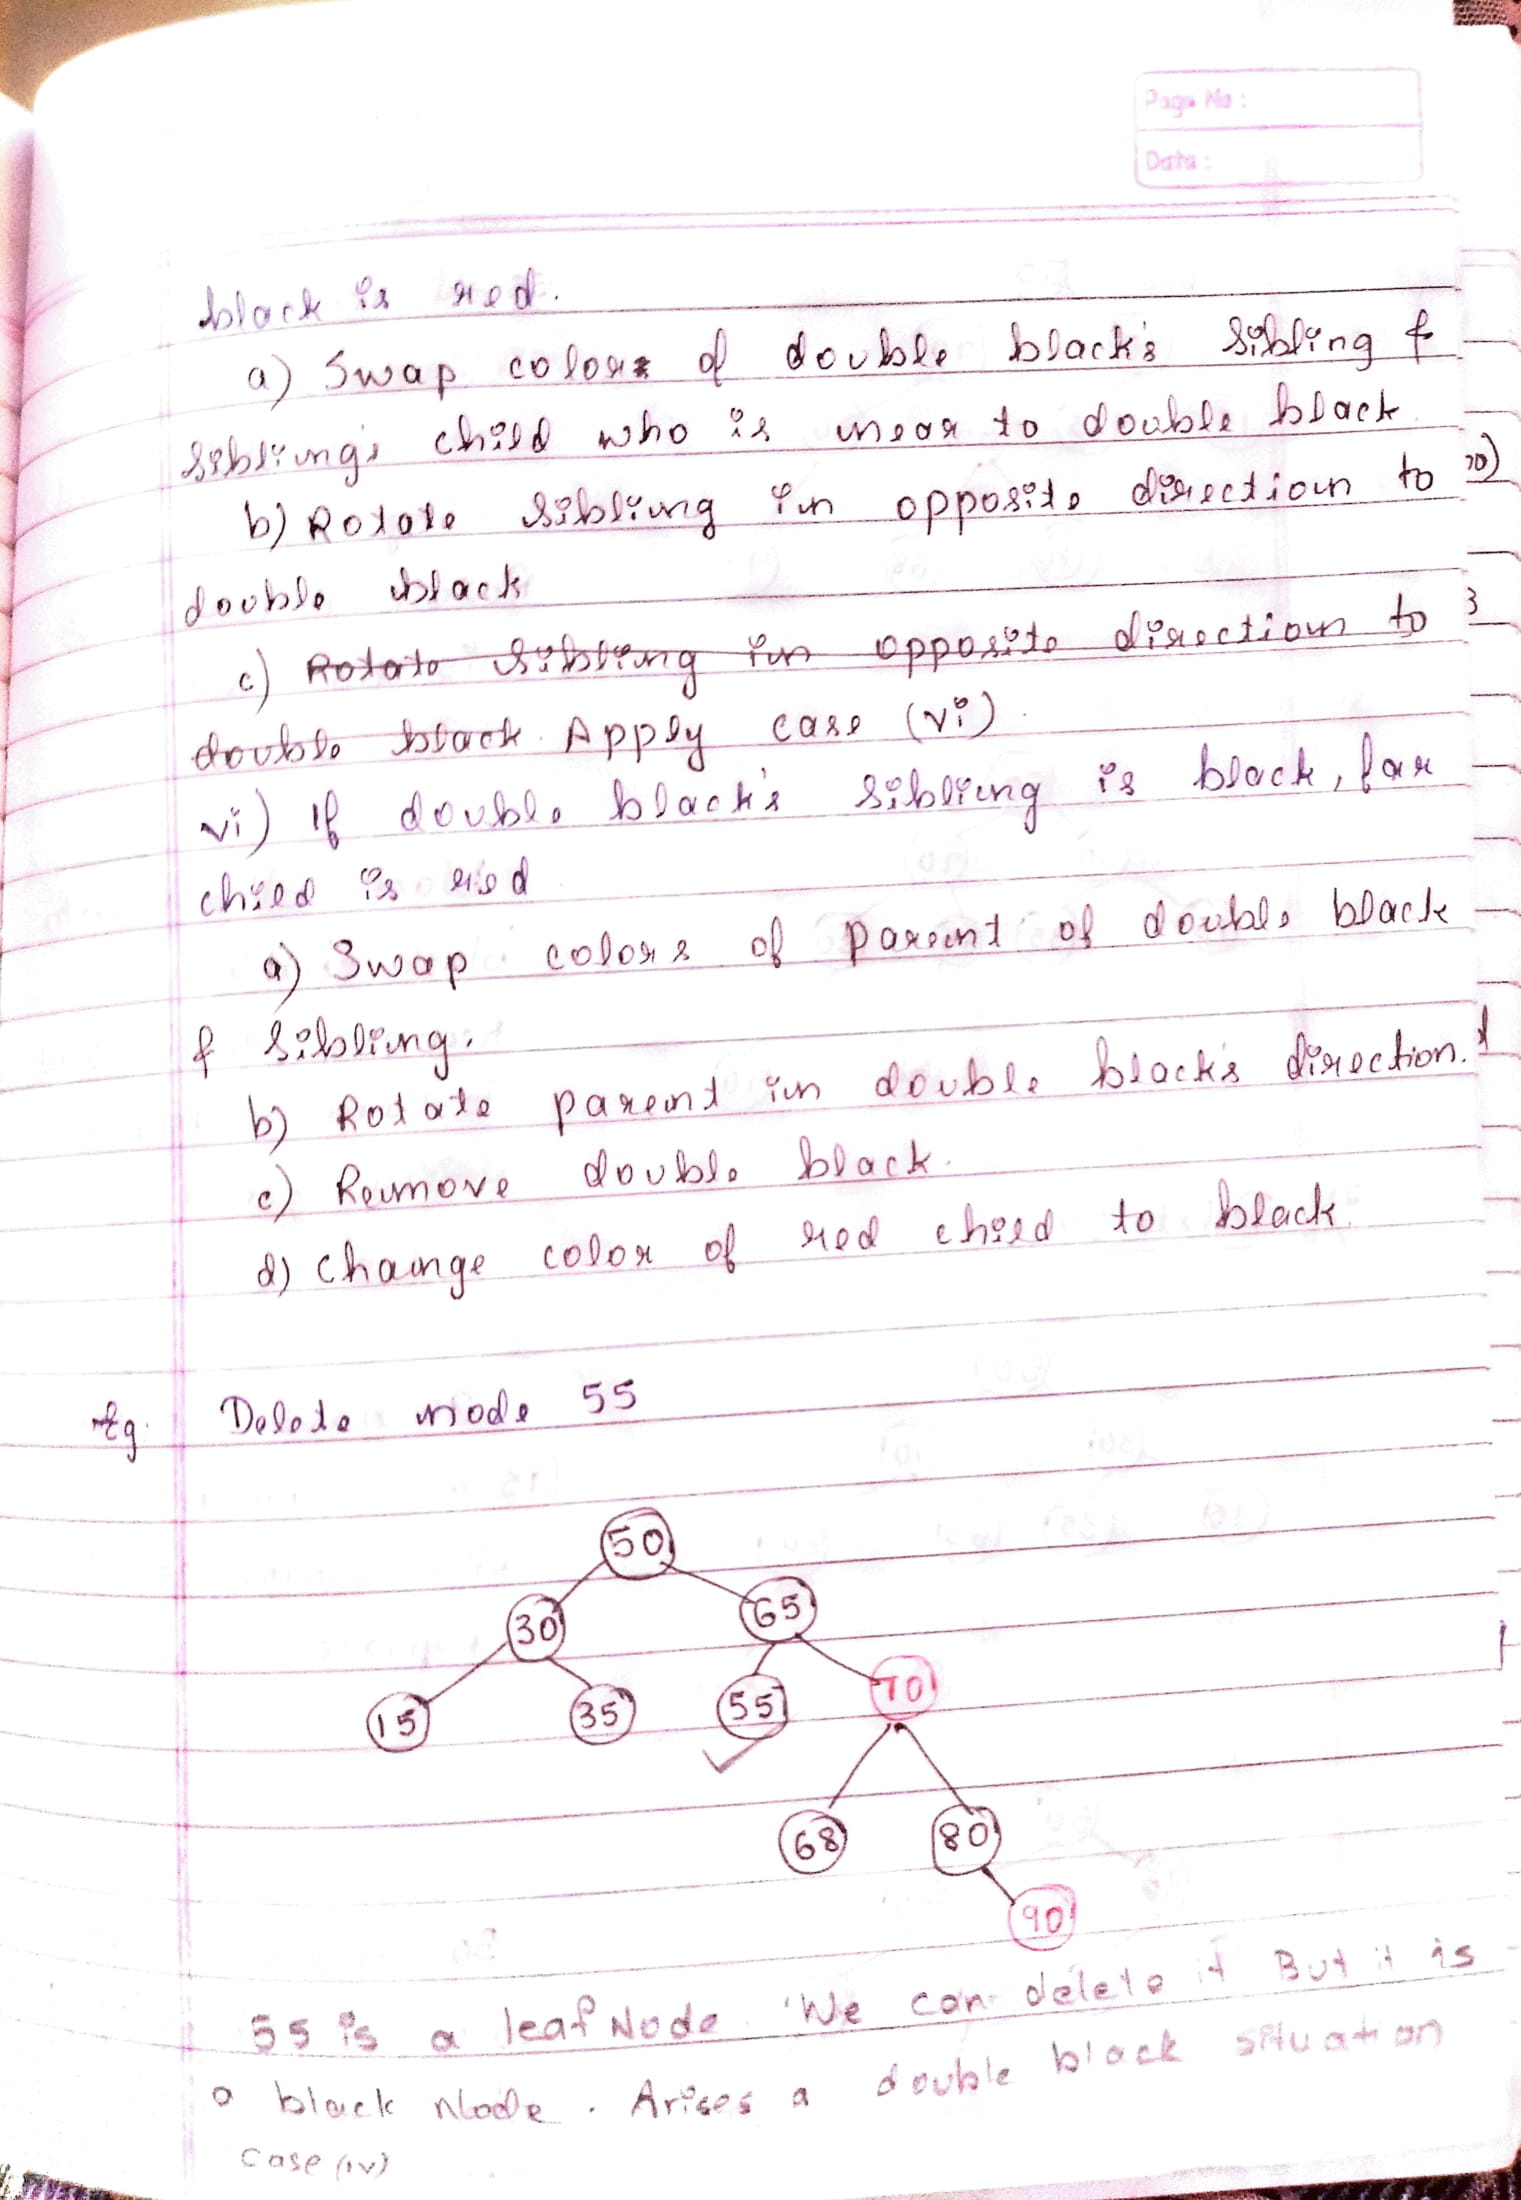 Page No :
Date :
black is red.
a) Swap colors of double black's sibling &
sibling's child who is near to double black
b) Rotate sibling in opposite direction to
double black
c) Rotate sibling in opposite direction to
double black. Apply case (vi)
vi) If double black's sibling is black, far
child is red
a) Swap colors of parent of double black
& sibling.
b) Rotate parent in double black's direction.
c) Remove double black.
d) Change color of red child to black.
Eg. Delete node 55
50
30 65
15 35 55 70
68 80
90
55 is a leaf Node. We can delete it But it is
a black Node. Arises a double black situation
Case (iv)